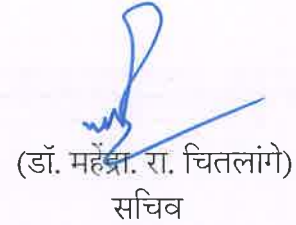 (डॉ. महेंद्रा. रा. चितलांगे)
सचिव